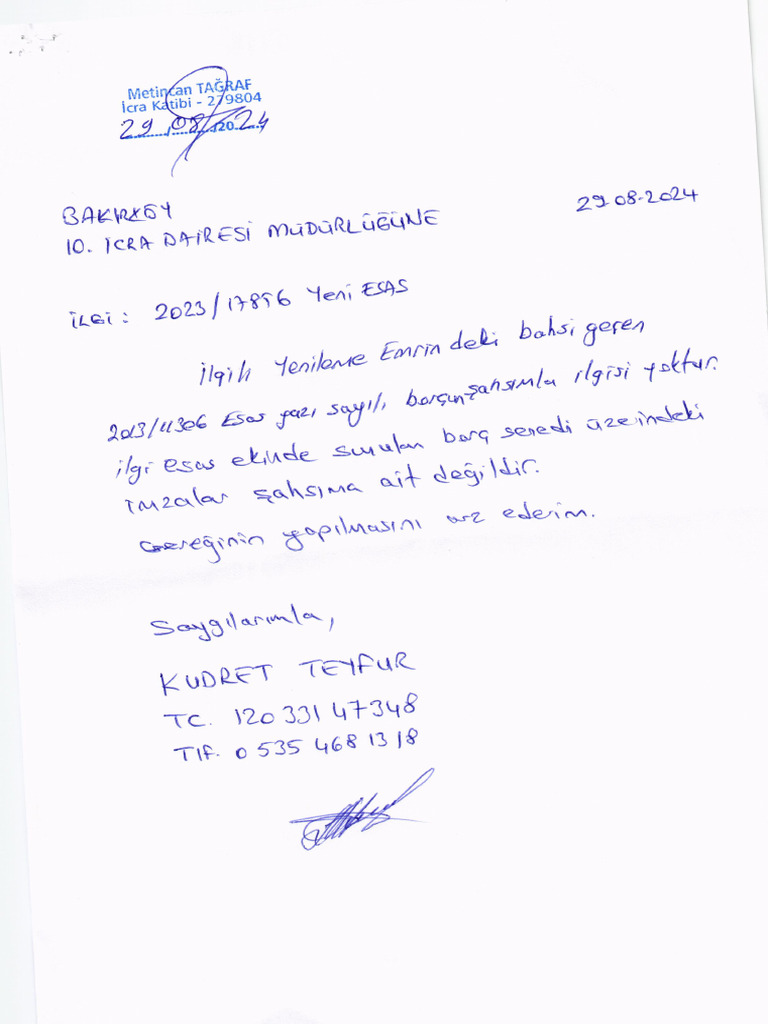 Metincan TAĞRAF
İcra Katibi - 279804
29/08/2024
29.08.2024
BAKIRKÖY
10. İCRA DAİRESİ MÜDÜRLÜĞÜNE
İLGİ : 2023/17896 Yeni ESAS
İlgili Yenileme Emrindeki bahsi geçen
2013/11306 Esas yazı sayılı, borçun şahsımla ilgisi yoktur.
ilgi esas ekinde sunulan borç senedi üzeindeki
imzalar şahsıma ait değildir.
Gereğinin yapılmasını arz ederim.
Saygılarımla,
KUDRET TEYFUR
TC. 120 331 47348
Tlf. 0 535 468 13 18